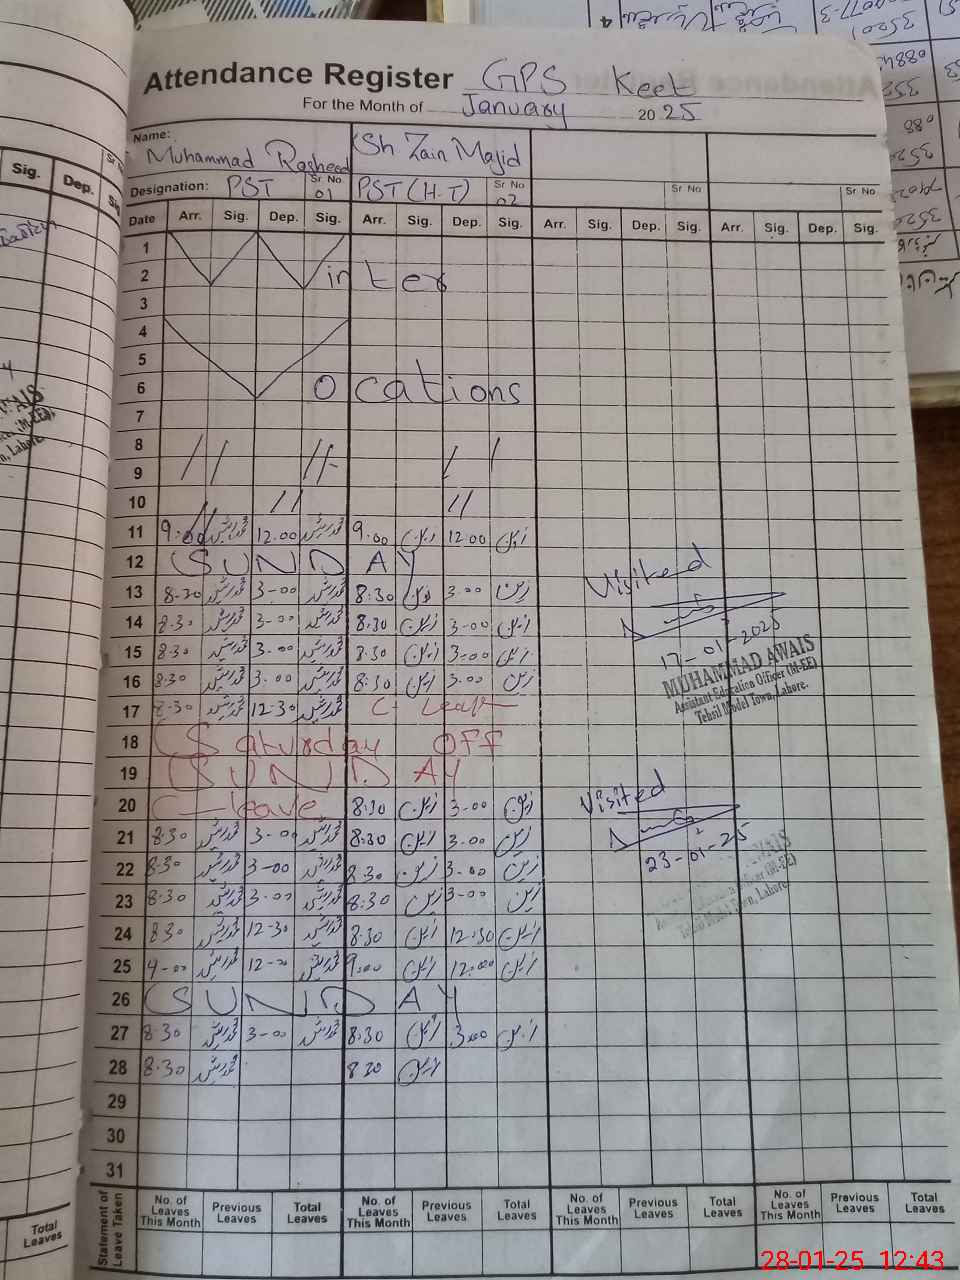 Attendance Register GPS Keet
For the Month of January 2025
Name: Muhammad Rasheed Sh Zain Majid
Designation: PST Sr No 01 PST (H-T) Sr No 02 Sr No Sr No
Date Arr. Sig. Dep. Sig. Arr. Sig. Dep. Sig. Arr. Sig. Dep. Sig. Arr. Sig. Dep. Sig.
1
2 Winter
3
4
5
6 Vocations
7
8
9
10
11 9:00 12:00 9:00 زین 12:00 زین
12 SUNDAY
13 8-30 3-00 8:30 زین 3:00 زین
14 8:30 3-00 8:30 زین 3-00 زین
15 8:30 3-00 8:30 زین 3:00 زین
16 8:30 3-00 8:30 زین 3:00 زین
17 8-30 12-30
18 Saturday OFF
19 SUNDAY
20 C-leave 8:30 زین 3-00 زین
21 8:30 3-00 8:30 زین 3.00 زین
22 8-30 3-00 8:30 زین 3-00 زین
23 8-30 3-00 8:30 زین 3-00 زین
24 8:30 12-30 8:30 زین 12:30 زین
25 9:00 زین 12:00 زین
26 SUNDAY
27 8:30 3-00 8:30 زین 3:00 زین
28 8:30 8:30 زین
29
30
31
Visited
17-01-2025
MUHAMMAD AWAIS
Assistant Education Officer (M-EE)
Tehsil Model Town, Lahore.
Visited
23-01-25
Tehsil Model Town, Lahore.
Statement of Leave Taken
No. of Leaves This Month Previous Leaves Total Leaves No. of Leaves This Month Previous Leaves Total Leaves No. of Leaves This Month Previous Leaves Total Leaves No. of Leaves This Month Previous Leaves Total Leaves
Sig. Dep.
Total Leaves
28-01-25 12:43